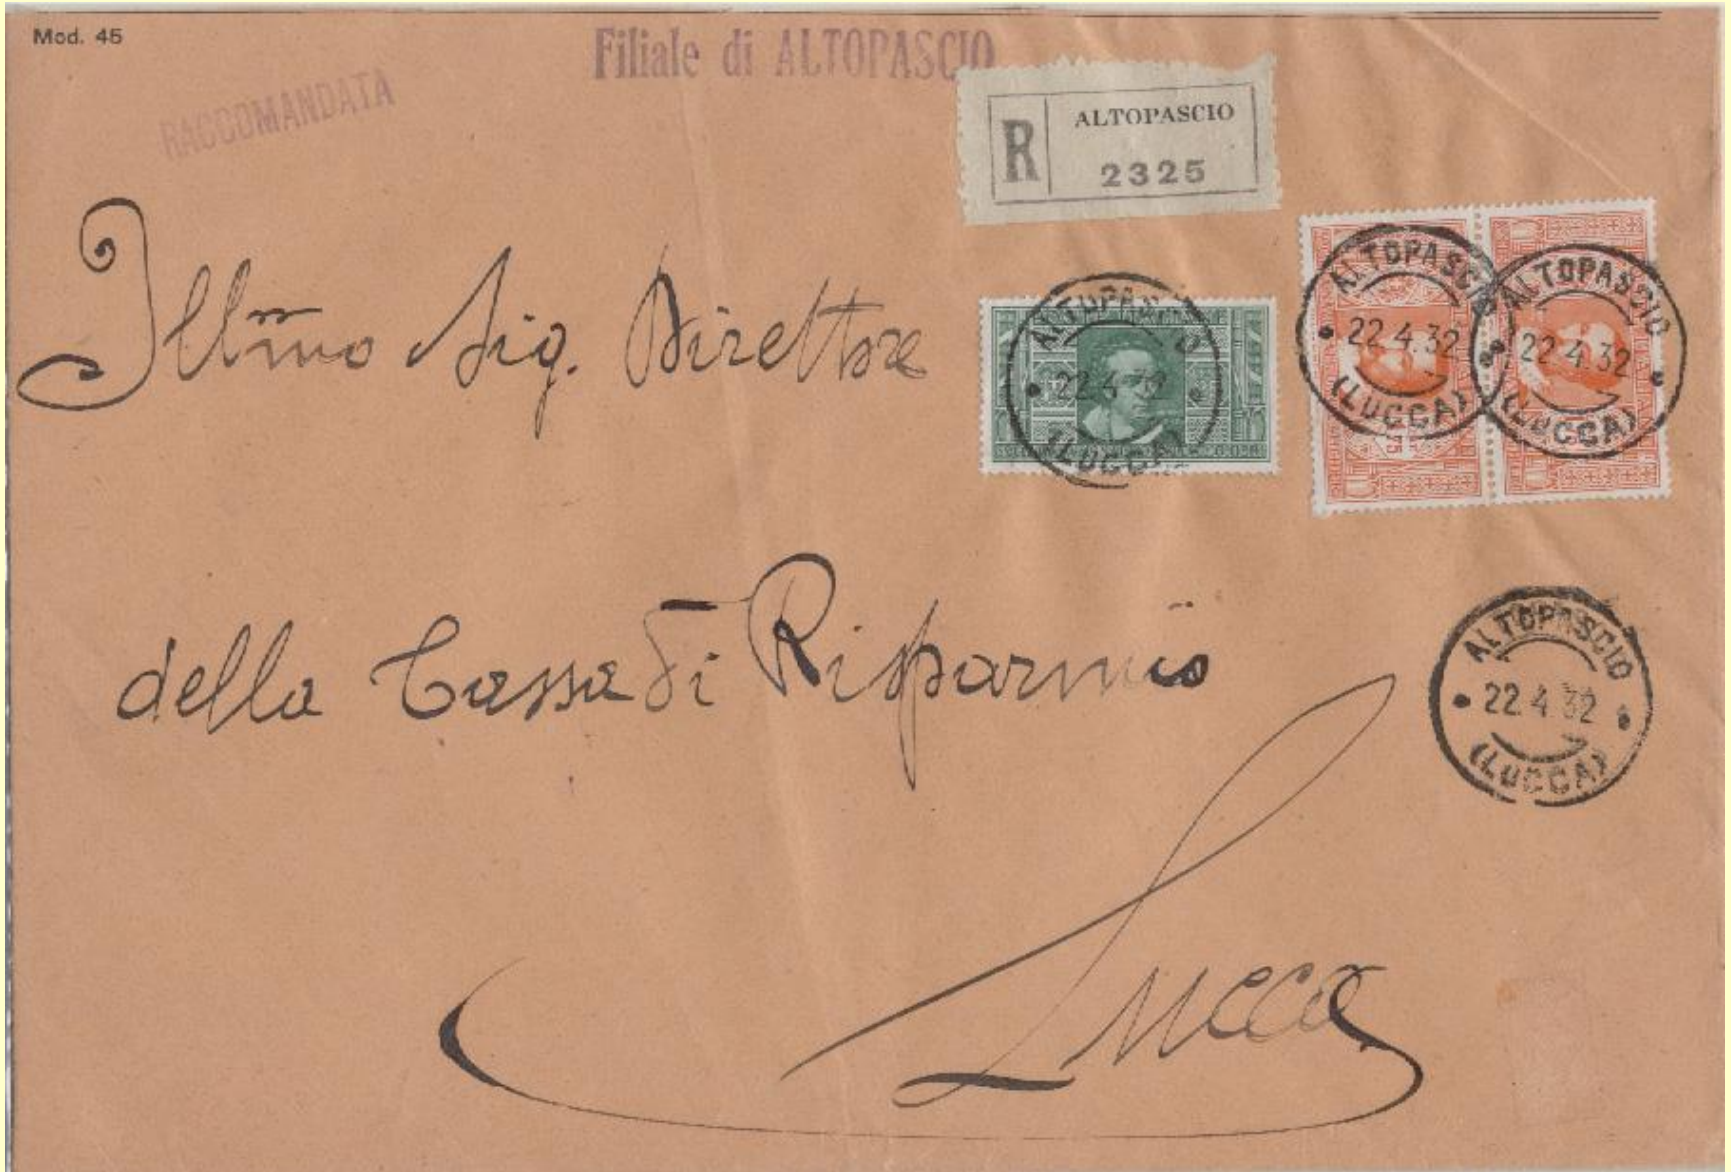 Mod. 45
Filiale di ALTOPASCIO
RACCOMANDATA
R
ALTOPASCIO
2325
ALTOPASCIO
22 4 32
(LUCCA)
ALTOPASCIO
22 4 32
(LUCCA)
ALTOPASCIO
22 4 32
(LUCCA)
Illmo Sig. Direttore
della Cassa di Risparmio
ALTOPASCIO
22 4 32
(LUCCA)
Lucca